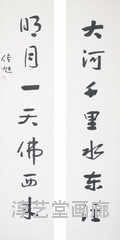 大河千里水东注
明月一天佛西来
汉艺堂画廊